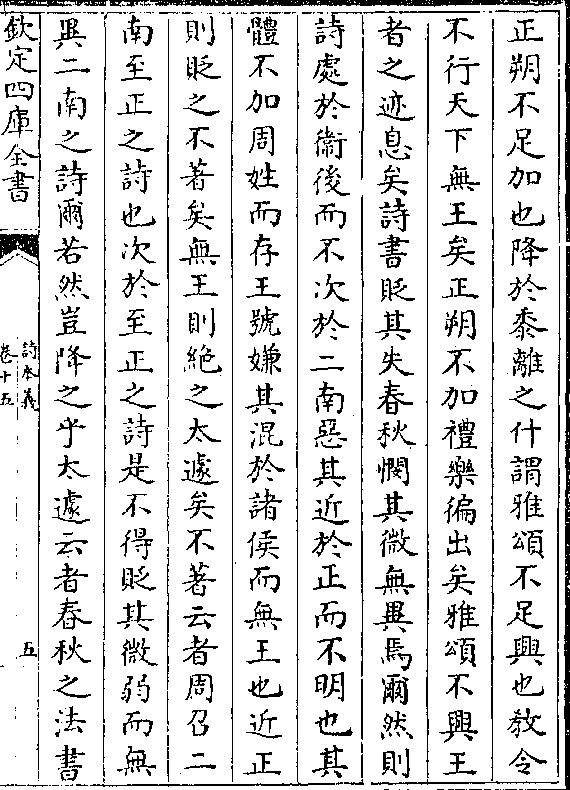 正朔不足加也降於黍離之什謂雅頌不足興也教令
不行天下無王矣正朔不加禮樂徧出矣雅頌不興王
者之迹息矣詩書貶其失春秋憫其微無異焉爾然則
詩處於衞後而不次於二南惡其近於正而不明也其
體不加周姓而存王號嫌其混於諸侯而無王也近正
則貶之不著矣無王則絶之太遽矣不著云者周召二
南至正之詩也次於至正之詩是不得貶其微弱而無
異二南之詩爾若然豈降之乎太遽云者春秋之法書
欽定四庫全書
詩本義
卷十五
五